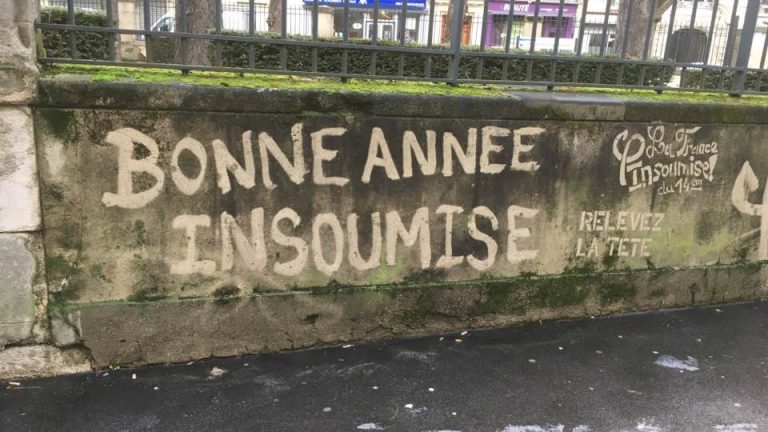 BONNE ANNEE
INSOUMISE
La France
insoumise!
du 14em
RELEVEZ
LA TETE